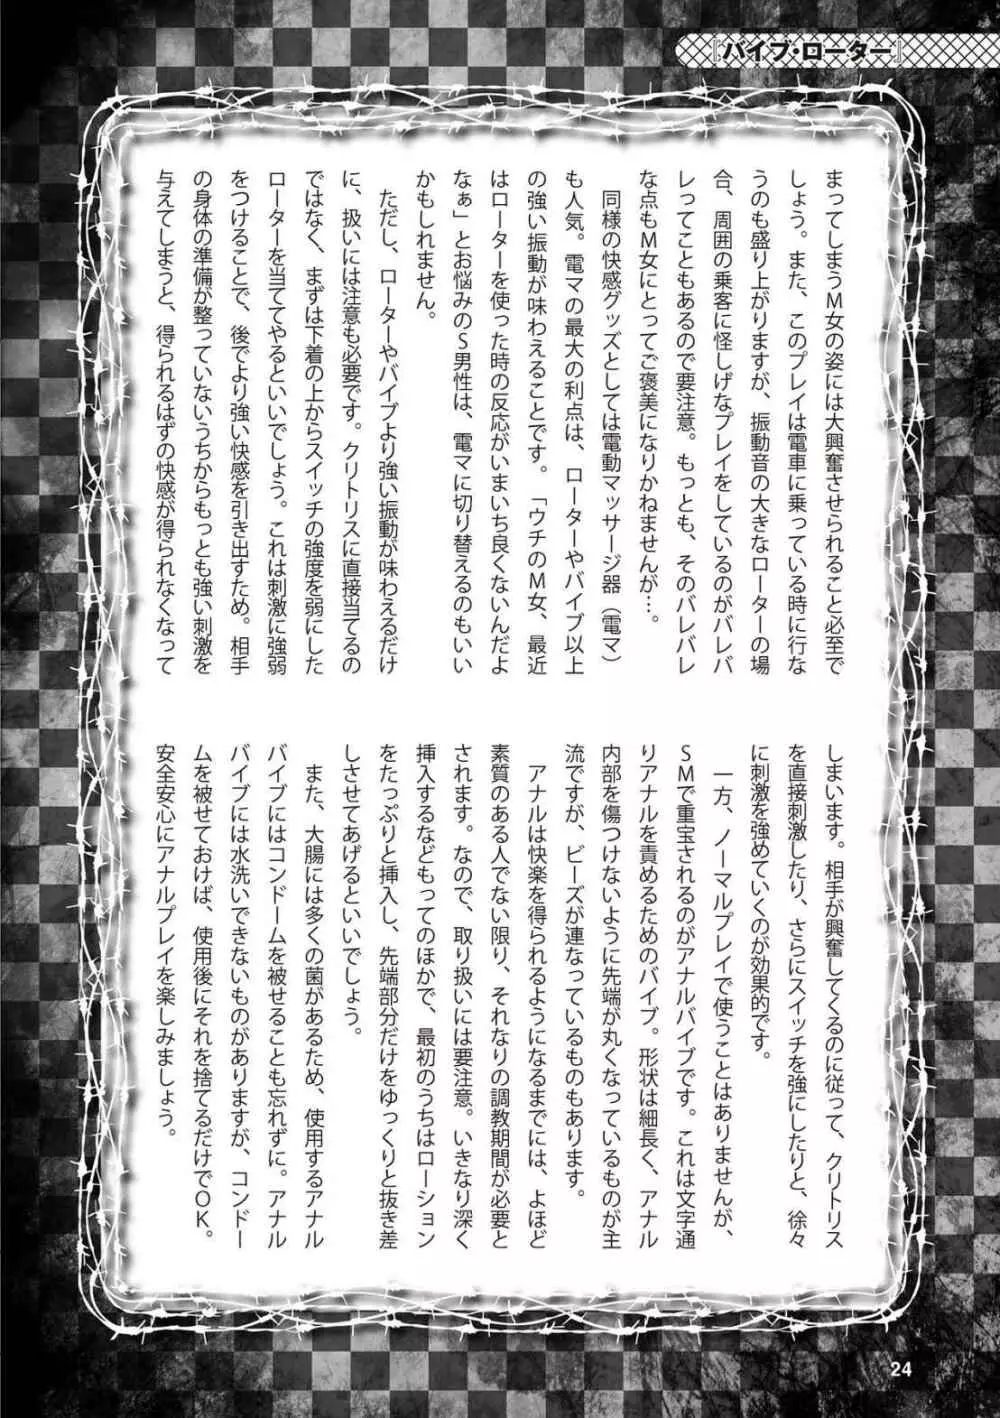 『バイブ・ローター』
まってしまうM女の姿には大興奮させられること必至で
しょう。また、このプレイは電車に乗っている時に行な
うのも盛り上がりますが、振動音の大きなローターの場
合、周囲の乗客に怪しげなプレイをしているのがバレバ
レってこともあるので要注意。もっとも、そのバレバレ
な点もM女にとってご褒美になりかねませんが…。
同様の快感グッズとしては電動マッサージ器（電マ）
も人気。電マの最大の利点は、ローターやバイブ以上
の強い振動が味わえることです。「ウチのM女、最近
はローターを使った時の反応がいまいち良くないんだよ
なぁ」とお悩みのS男性は、電マに切り替えるのもいい
かもしれません。
ただし、ローターやバイブより強い振動が味わえるだけ
に、扱いには注意も必要です。クリトリスに直接当てるの
ではなく、まずは下着の上からスイッチの強度を弱にした
ローターを当ててやるといいでしょう。これは刺激に強弱
をつけることで、後でより強い快感を引き出すため。相手
の身体の準備が整っていないうちからもっとも強い刺激を
与えてしまうと、得られるはずの快感が得られなくなって
しまいます。相手が興奮してくるのに従って、クリトリス
を直接刺激したり、さらにスイッチを強にしたりと、徐々
に刺激を強めていくのが効果的です。
一方、ノーマルプレイで使うことはありませんが、
SMで重宝されるのがアナルバイブです。これは文字通
りアナルを責めるためのバイブ。形状は細長く、アナル
内部を傷つけないように先端が丸くなっているものが主
流ですが、ビーズが連なっているものもあります。
アナルは快楽を得られるようになるまでには、よほど
素質のある人でない限り、それなりの調教期間が必要と
されます。なので、取り扱いには要注意。いきなり深く
挿入するなどもってのほかで、最初のうちはローション
をたっぷりと挿入し、先端部分だけをゆっくりと抜き差
しさせてあげるといいでしょう。
また、大腸には多くの菌があるため、使用するアナル
バイブにはコンドームを被せることも忘れずに。アナル
バイブには水洗いできないものがありますが、コンドー
ムを被せておけば、使用後にそれを捨てるだけでOK。
安全安心にアナルプレイを楽しみましょう。
24